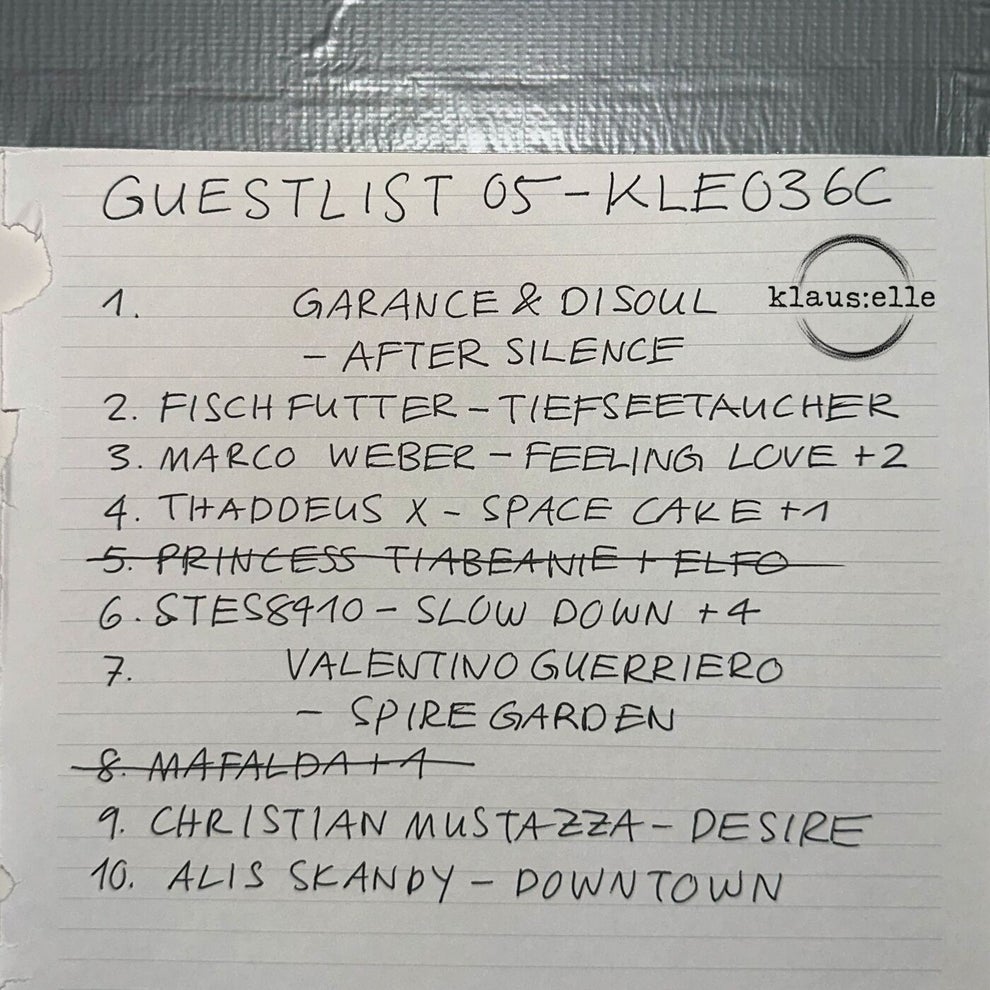 GUESTLIST 05 - KLE036C
klaus:elle
1. GARANCE & DISOUL
- AFTER SILENCE
2. FISCHFUTTER - TIEFSEETAUCHER
3. MARCO WEBER - FEELING LOVE +2
4. THADDEUS X - SPACE CAKE +1
5. PRINCESS TIABEANIE + ELFO
6. STES8410 - SLOW DOWN +4
7. VALENTINO GUERRIERO
- SPIRE GARDEN
8. MAFALDA +1
9. CHRISTIAN MUSTAZZA - DESIRE
10. ALIS SKANDY - DOWNTOWN